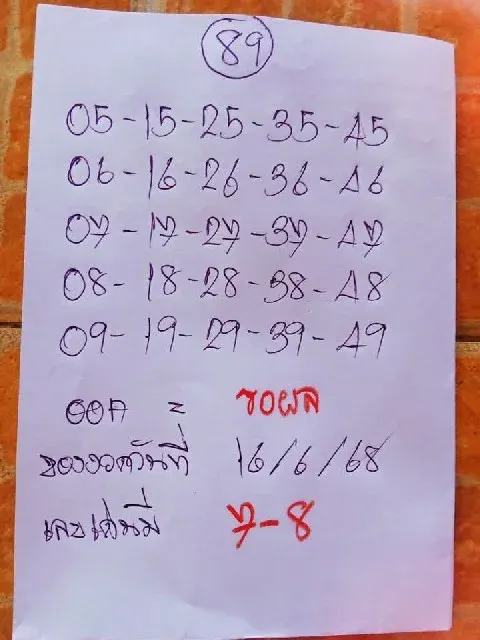 89
05-15-25-35-45
06-16-26-36-46
07-17-27-37-47
08-18-28-38-48
09-19-29-39-49
ออก = ขอผล
ของงวดวันที่ 16/6/68
เลขเด่นมี่ 7-8